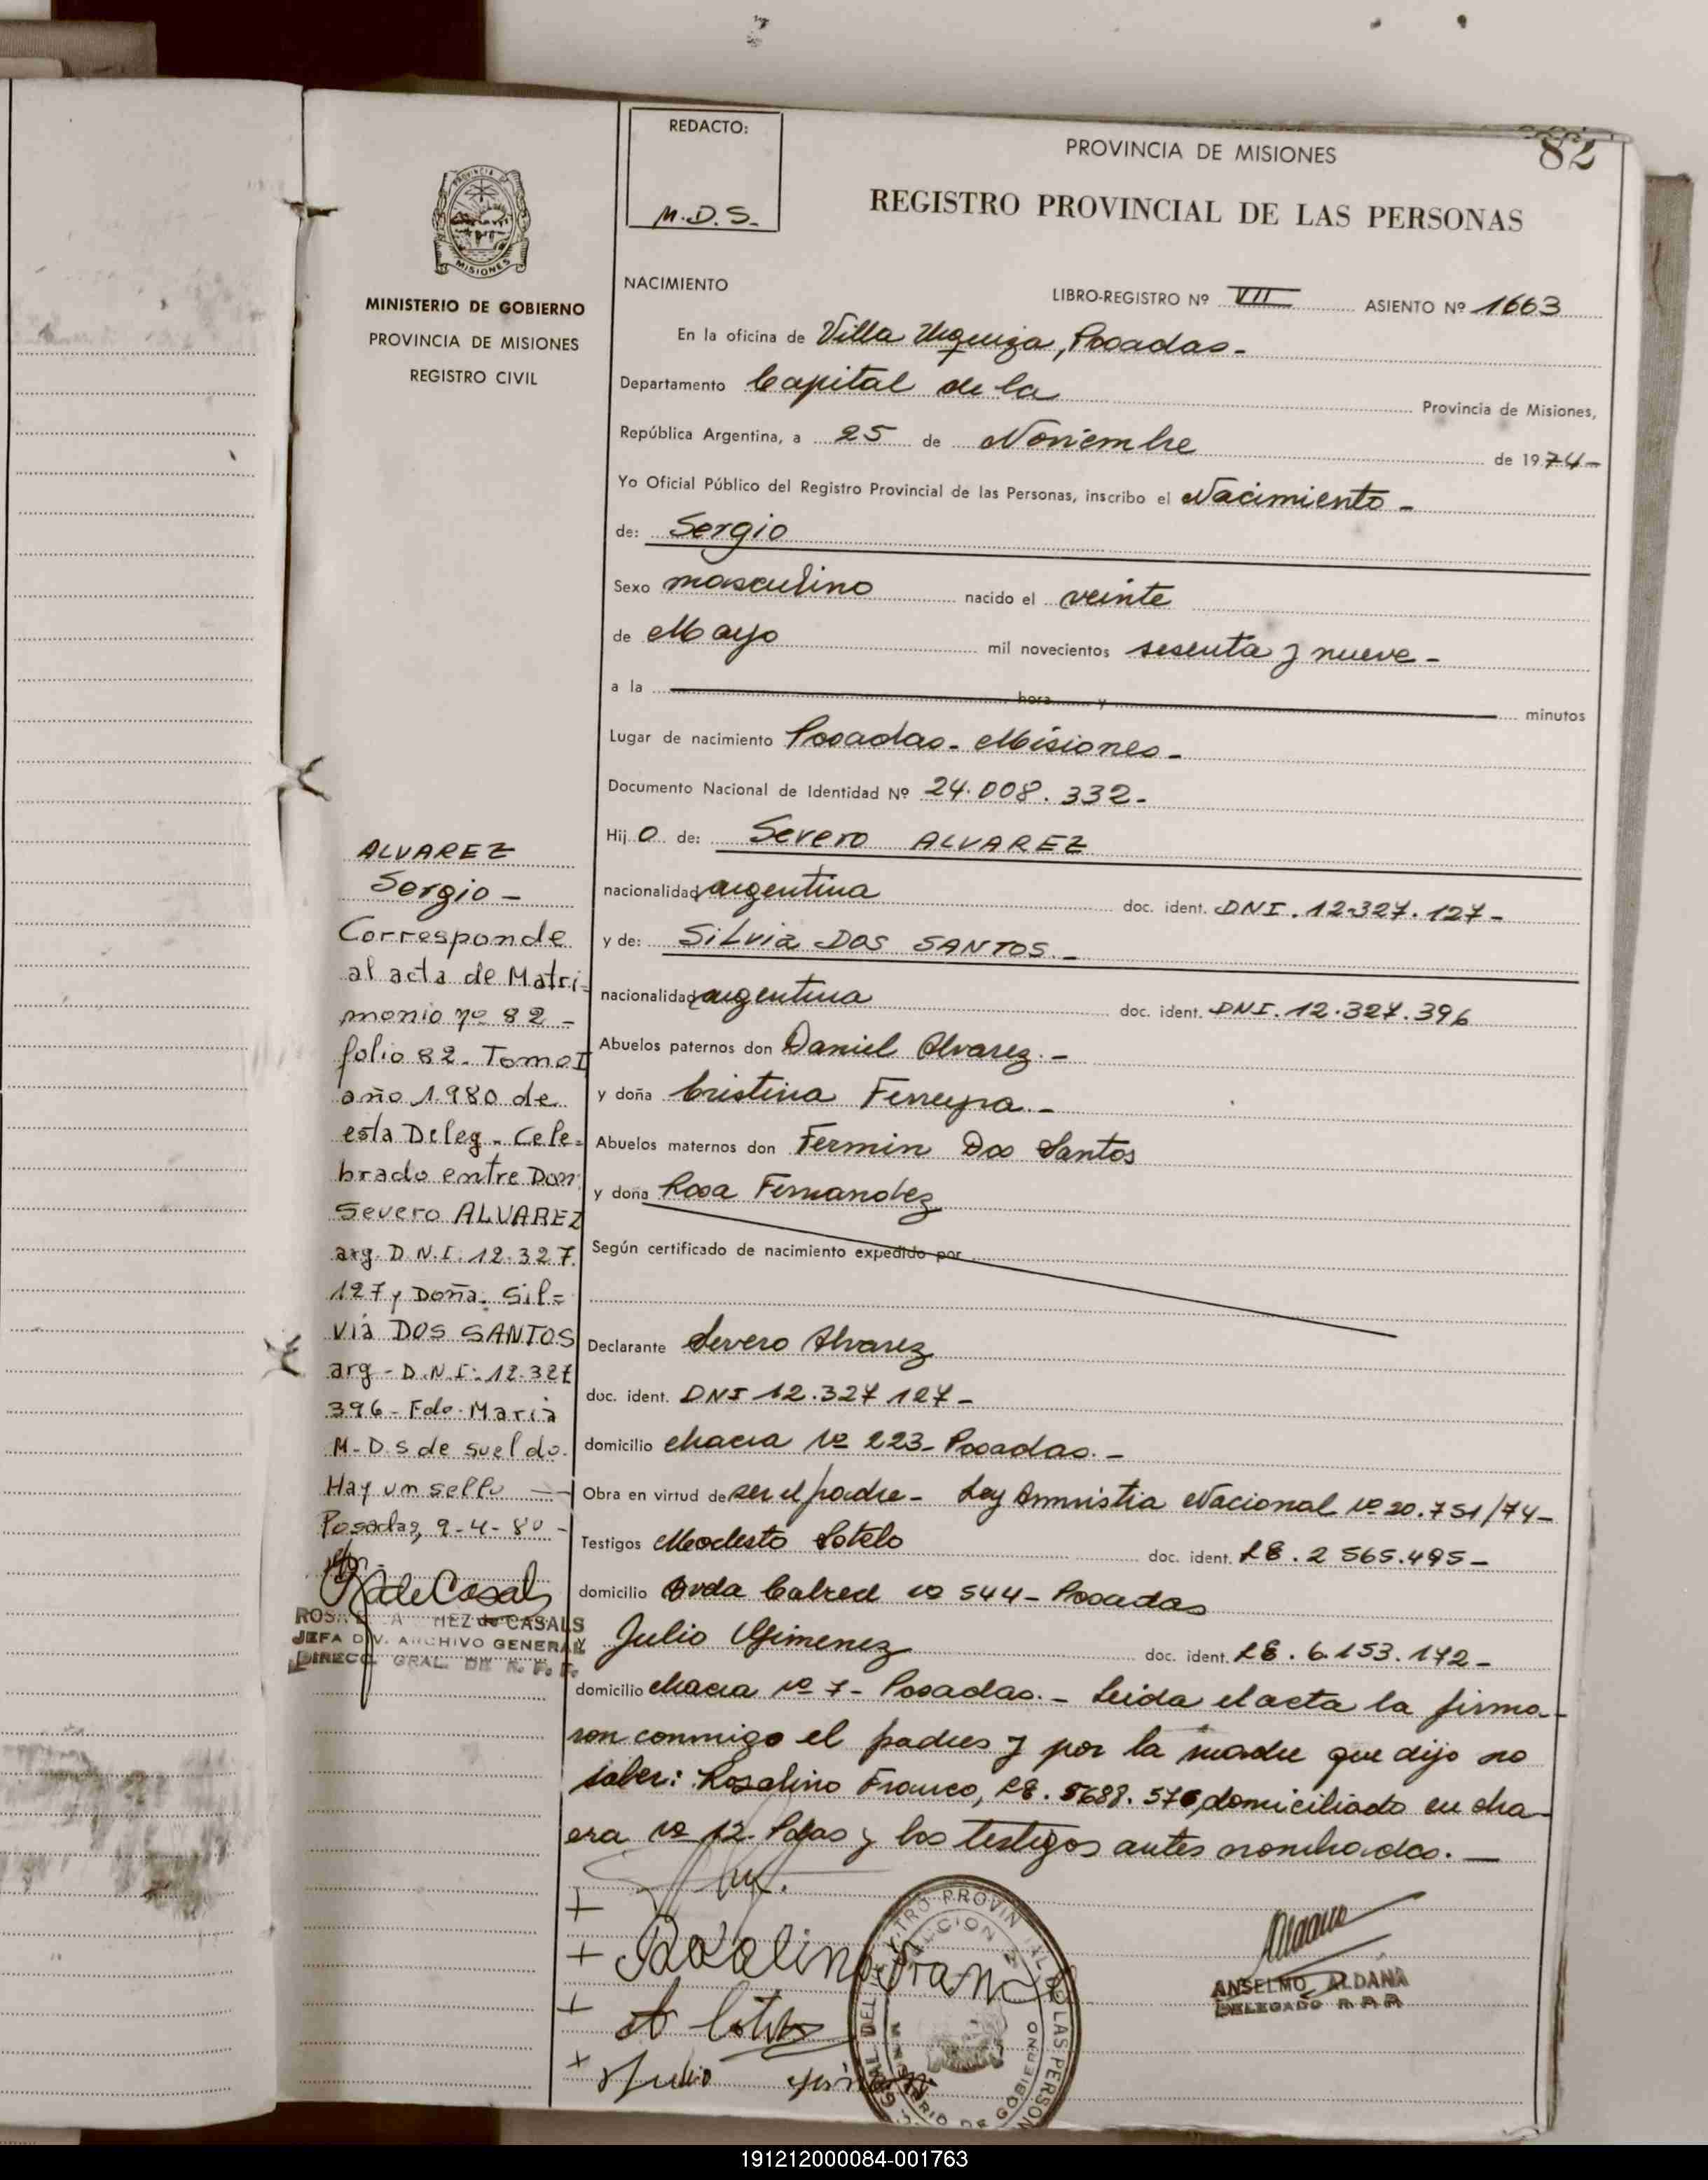 REDACTO:
M.D.S.-
PROVINCIA DE MISIONES
82
REGISTRO PROVINCIAL DE LAS PERSONAS
PROVINCIA D
MISIONES
MINISTERIO DE GOBIERNO
PROVINCIA DE MISIONES
REGISTRO CIVIL
NACIMIENTO
LIBRO-REGISTRO Nº VII ASIENTO Nº 1663
En la oficina de Villa Urquiza, Posadas-
Departamento Capital de la Provincia de Misiones,
República Argentina, a 25 de Noviembre de 1974-
Yo Oficial Público del Registro Provincial de las Personas, inscribo el Nacimiento-
de: Sergio
Sexo masculino nacido el veinte
de Mayo mil novecientos sesenta y nueve-
a la hora y minutos
Lugar de nacimiento Posadas- Misiones-
Documento Nacional de Identidad Nº 24.008.332-
Hij o de: Severo ALVAREZ
nacionalidad argentina doc. ident. DNI. 12.327.127-
y de: Silvia DOS SANTOS.-
nacionalidad argentina doc. ident. DNI. 12.327.396
Abuelos paternos don Daniel Alvarez.-
y doña Cristina Ferreyra.-
Abuelos maternos don Fermin Dos Santos
y doña Rosa Fernandez
Según certificado de nacimiento expedido por
Declarante Severo Alvarez
doc. ident. DNI 12.327 127-
domicilio chacra nº 223- Posadas.-
Obra en virtud de ser el padre- Ley Amnistia Nacional nº 20.751/74-
Testigos Modesto Sotelo doc. ident. LE. 2 565.495-
domicilio Avda Cabred nº 544- Posadas
y Julio Gimenez doc. ident. LE. 6.153.172-
domicilio chacra nº 7- Posadas.- Leida el acta la firma-
ron conmigo el padres y por la madre que dijo no
saber: Rosalino Franco, LE. 5688.576 domiciliado en cha-
cra nº 12- Pdas y los testigos antes nombrados.-
ALVAREZ
Sergio-
Corresponde
al acta de Matri-
monio nº 82-
folio 82- Tomo I
año 1.980 de
esta Deleg- Cele-
brado entre Don
Severo ALVAREZ
arg. D.N.I. 12.327.
127 y Doña. Sil=
via DOS SANTOS
arg- D.N.I: 12.327
396- Fdo. Maria
M-D.S de Sueldo.
Hay un sello
Posadas, 9-4-80-
R de Casals
MEZ de CASALS
JEFA DIV. ARCHIVO GENERAL
DIRECC. GRAL. DE R. P. P.
+
+ Rosalino Fran
+
+ Julio
MINISTERIO DE GOBIERNO
ANSELMO ALDANA
DELEGADO R.P.P.
191212000084-001763